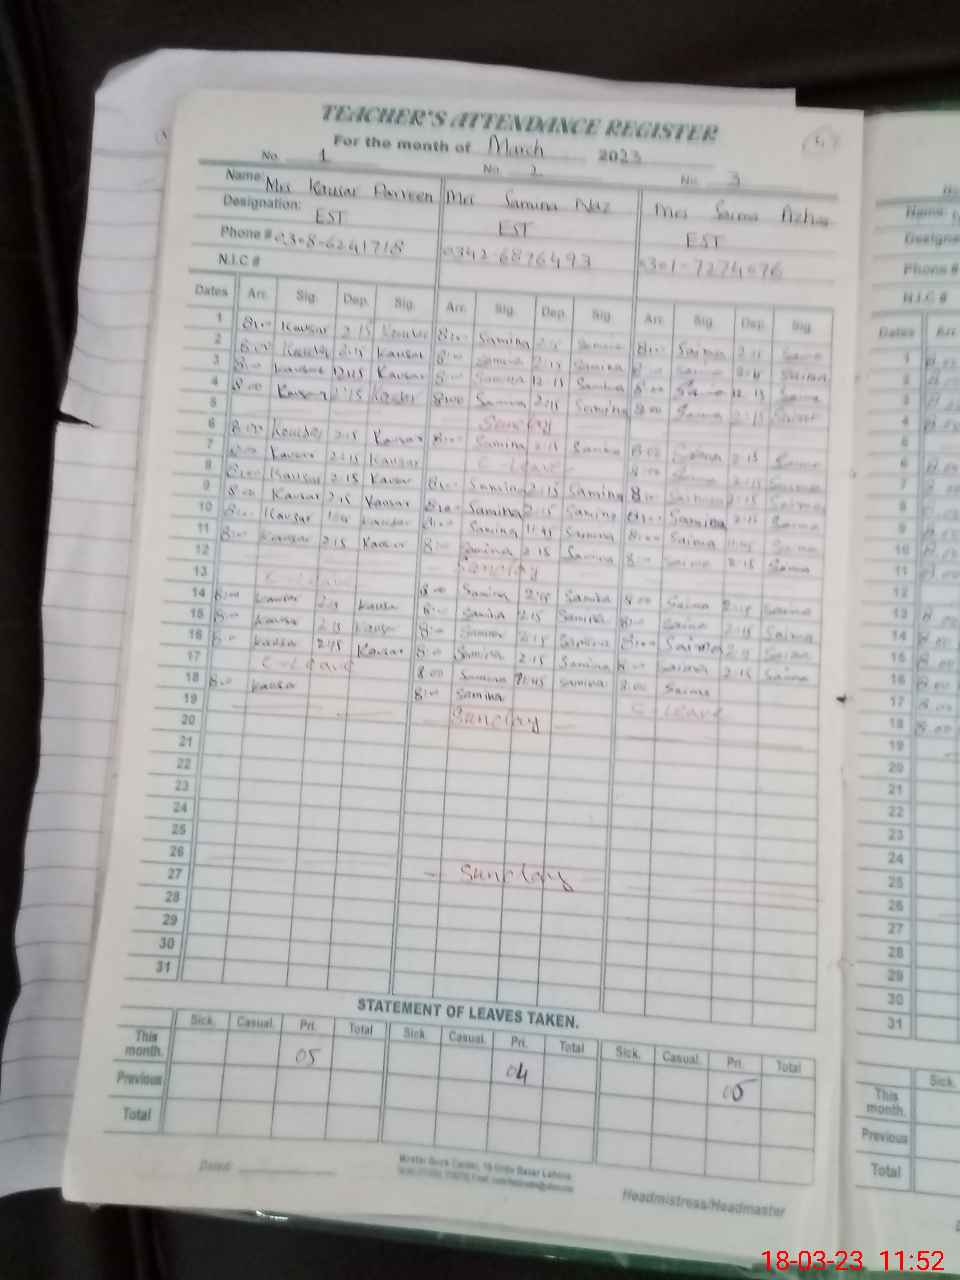 TEACHER'S ATTENDANCE REGISTER
For the month of March 2023
No. 1 No. 2 No. 3
Name: Mrs Kausar Parveen Mrs Samina Naz Mrs Saima Azhar
Designation: EST EST EST
Phone # 0342-6876493
N.I.C #
Dates Arr. Sig. Dep. Sig. Arr. Sig. Dep. Sig. Arr. Sig. Dep. Sig.
1 8:00 Kausar 2:15 Kausar 8:00 Samina 2:15 Samina 8:00 Saima 2:15 Saima
2 8:00 Kausar 2:15 Kausar 8:00 Samina 2:15 Samina 8:00 Saima 2:15 Saima
3 8:00 Kausar 12:15 Kausar 8:00 Samina 12:15 Samina 8:00 Saima 12:15 Saima
4 8:00 Kausar 2:15 Kausar 8:00 Samina 2:15 Samina 8:00 Saima 2:15 Saima
5 Sunday
6 8:00 Kausar 2:15 Kausar 8:00 Samina 2:15 Samina 8:00 Saima 2:15 Saima
7 8:00 Kausar 2:15 Kausar C-Leave 8:00 Saima 2:15 Saima
8 8:00 Kausar 2:15 Kausar 8:00 Samina 2:15 Samina 8:00 Saima 2:15 Saima
9 8:00 Kausar 2:15 Kausar 8:00 Samina 2:15 Samina 8:00 Saima 2:15 Saima
10 8:00 Kausar Kausar 8:00 Samina 11:45 Samina 8:00 Saima 11:45 Saima
11 8:00 Kausar 2:15 Kausar 8:00 Samina 2:15 Samina 8:00 Saima 2:15 Saima
12 Sunday
13 C-Leave 8:00 Samina 2:15 Samina 8:00 Saima 2:15 Saima
14 8:00 Kausar 2:15 Kausar 8:00 Samina 2:15 Samina 8:00 Saima 2:15 Saima
15 8:00 Kausar 2:15 Kausar 8:00 Samina 2:15 Samina 8:00 Saima 2:15 Saima
16 8:00 Kausar 2:15 Kausar 8:00 Samina 2:15 Samina 8:00 Saima 2:15 Saima
17 C-Leave 8:00 Samina 11:45 Samina 8:00 Saima
18 8:00 Kausar 8:00 Samina C-Leave
19 Sunday
20
21
22
23
24
25
26 Sunday
27
28
29
30
31
STATEMENT OF LEAVES TAKEN.
Sick. Casual. Pri. Total Sick. Casual. Pri. Total Sick. Casual. Pri. Total
This month. 05 04 05
Previous
Total
Dated
Headmistress/Headmaster
Dates Arr.
1
2
3
4
5
6
7
8
9
10
11
12
13
14
15
16
17 8.00
18 8.00
19
20
21
22
23
24
25
26
27
28
29
30
31
Sick.
This month.
Previous
Total
18-03-23 11:52